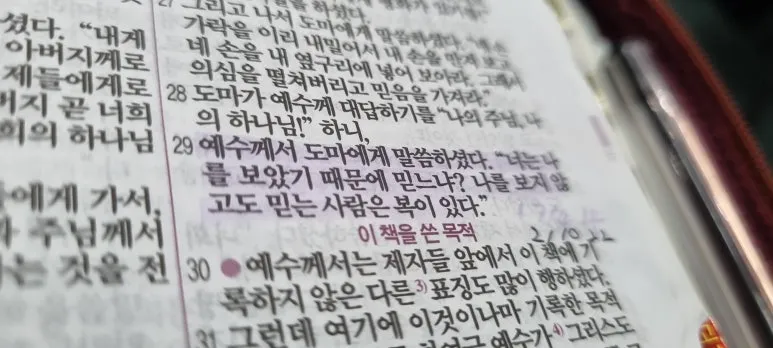 셨다. "내게
아버지께로
제들에게로
버지 곧 너희
희의 하나님
들에게 가서,
주님께서
는 것을 전
27 그리고 나서 도마에게 말씀하셨다.
가락을 이리 내밀어서 내 손을 만져 보고,
네 손을 내 옆구리에 넣어 보아라. 그래서
의심을 떨쳐버리고 믿음을 가져라."
28 도마가 예수께 대답하기를 "나의 주님, 나
의 하나님!" 하니,
29 예수께서 도마에게 말씀하셨다. "너는 나
를 보았기 때문에 믿느냐? 나를 보지 않
고도 믿는 사람은 복이 있다."
이 책을 쓴 목적
30 ● 예수께서는 제자들 앞에서 이 책에 기
록하지 않은 다른 3) 표징도 많이 행하셨다.
31 그런데 여기에 이것이나마 기록한 목적
예수가 4) 그리스도